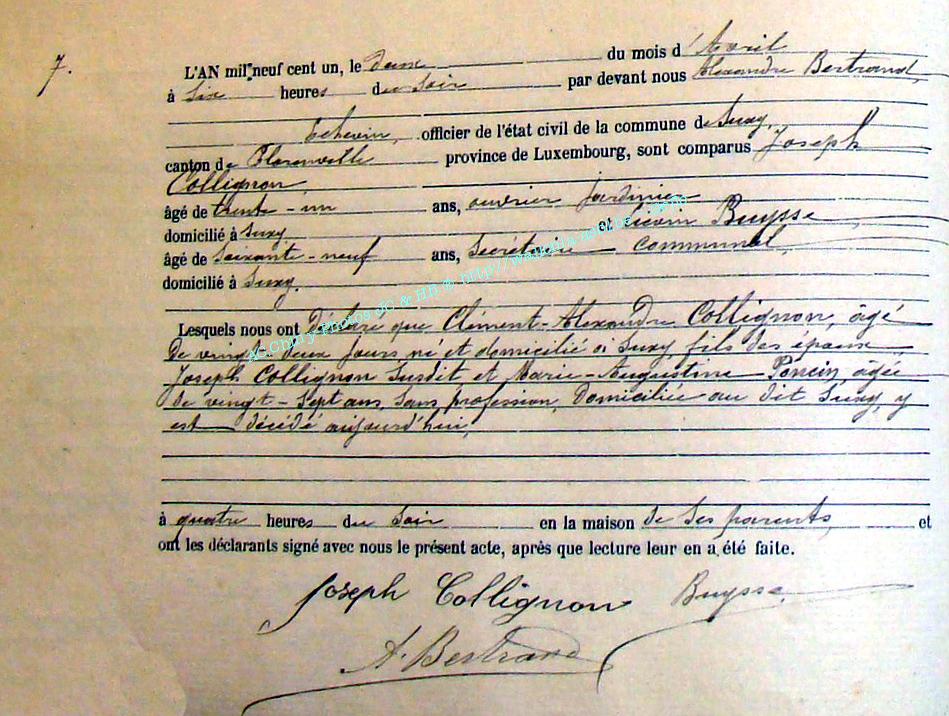 7.
L'AN mil neuf cent un, le deux du mois d'Avril
à Six heures du Soir par devant nous Alexandre Bertrand,
Echevin, officier de l'état civil de la commune de Suxy,
canton de Florenville province de Luxembourg, sont comparus Joseph
Collignon,
âgé de trente-un ans, ouvrier jardinier
domicilié à Suxy et Buysse
âgé de Soixante-neuf ans, Secrétaire communal,
domicilié à Suxy.
Lesquels nous ont Déclaré que Clément-Alexandre Collignon, âgé
De vingt-deux jours né et domicilié à Suxy, fils des époux
Joseph Collignon Susdit et Marie-Augustine Poncin, âgée
De vingt-Sept ans, Sans profession, Domiciliée au dit Suxy, y
est décédé aujourd'hui,
à quatre heures du Soir en la maison De Ses parents, et
ont les déclarants signé avec nous le présent acte, après que lecture leur en a été faite.
Joseph Collignon Buysse
A. Bertrand